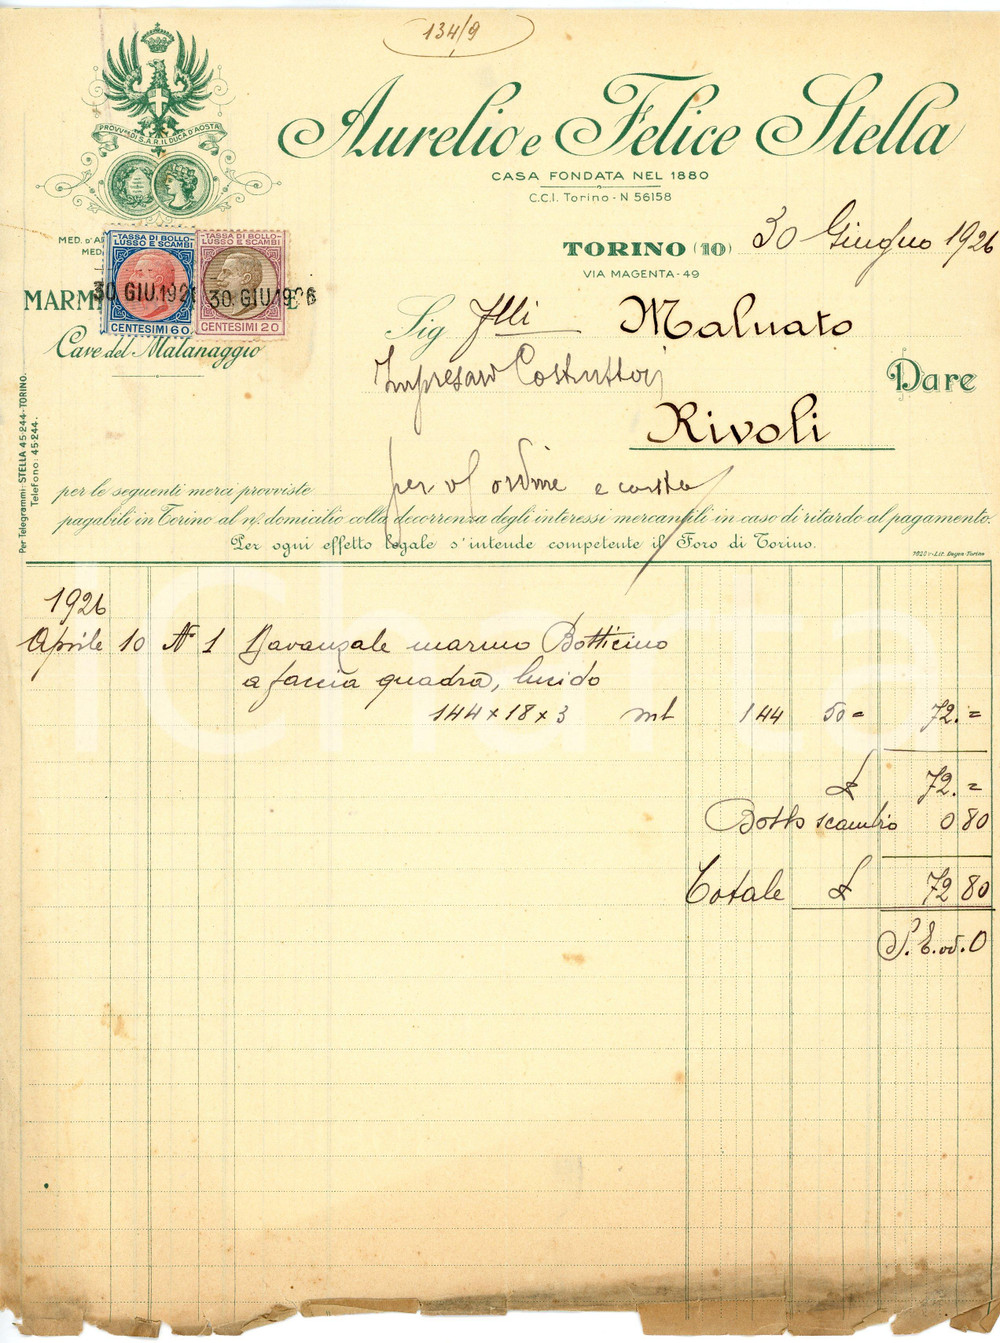 134/9
PROVV. DI S.A.R. IL DUCA D'AOSTA
Aurelio e Felice Stella
CASA FONDATA NEL 1880
C.C.I. Torino - N 56158
TORINO (10) 30 Giugno 1926
VIA MAGENTA - 49
MED. D'A
MED.
TASSA DI BOLLO
LUSSO E SCAMBI
30 GIU.1926
CENTESIMI 60
TASSA DI BOLLO
LUSSO E SCAMBI
30 GIU.1926
CENTESIMI 20
MARM E
Cave del Malanaggio
Sig Flli Maluato
Impresari Costruttori
Dare
Rivoli
per v/ ordine e conto
Per Telegrammi: STELLA 45-244 - TORINO.
Telefono: 45-244.
per le seguenti merci provviste
pagabili in Torino al n/. domicilio colla decorrenza degli interessi mercantili in caso di ritardo al pagamento.
Per ogni effetto legale s'intende competente il Foro di Torino.
1926
Aprile 10 N° 1 Davanzale marmo Botticino
a faccia quadra, lucido
144 x 18 x 3 mt 1 44 50 = 72. =
£ 72. =
Bollo scambio 0 80
Totale £ 72 80
S. E. od. O
iCharta